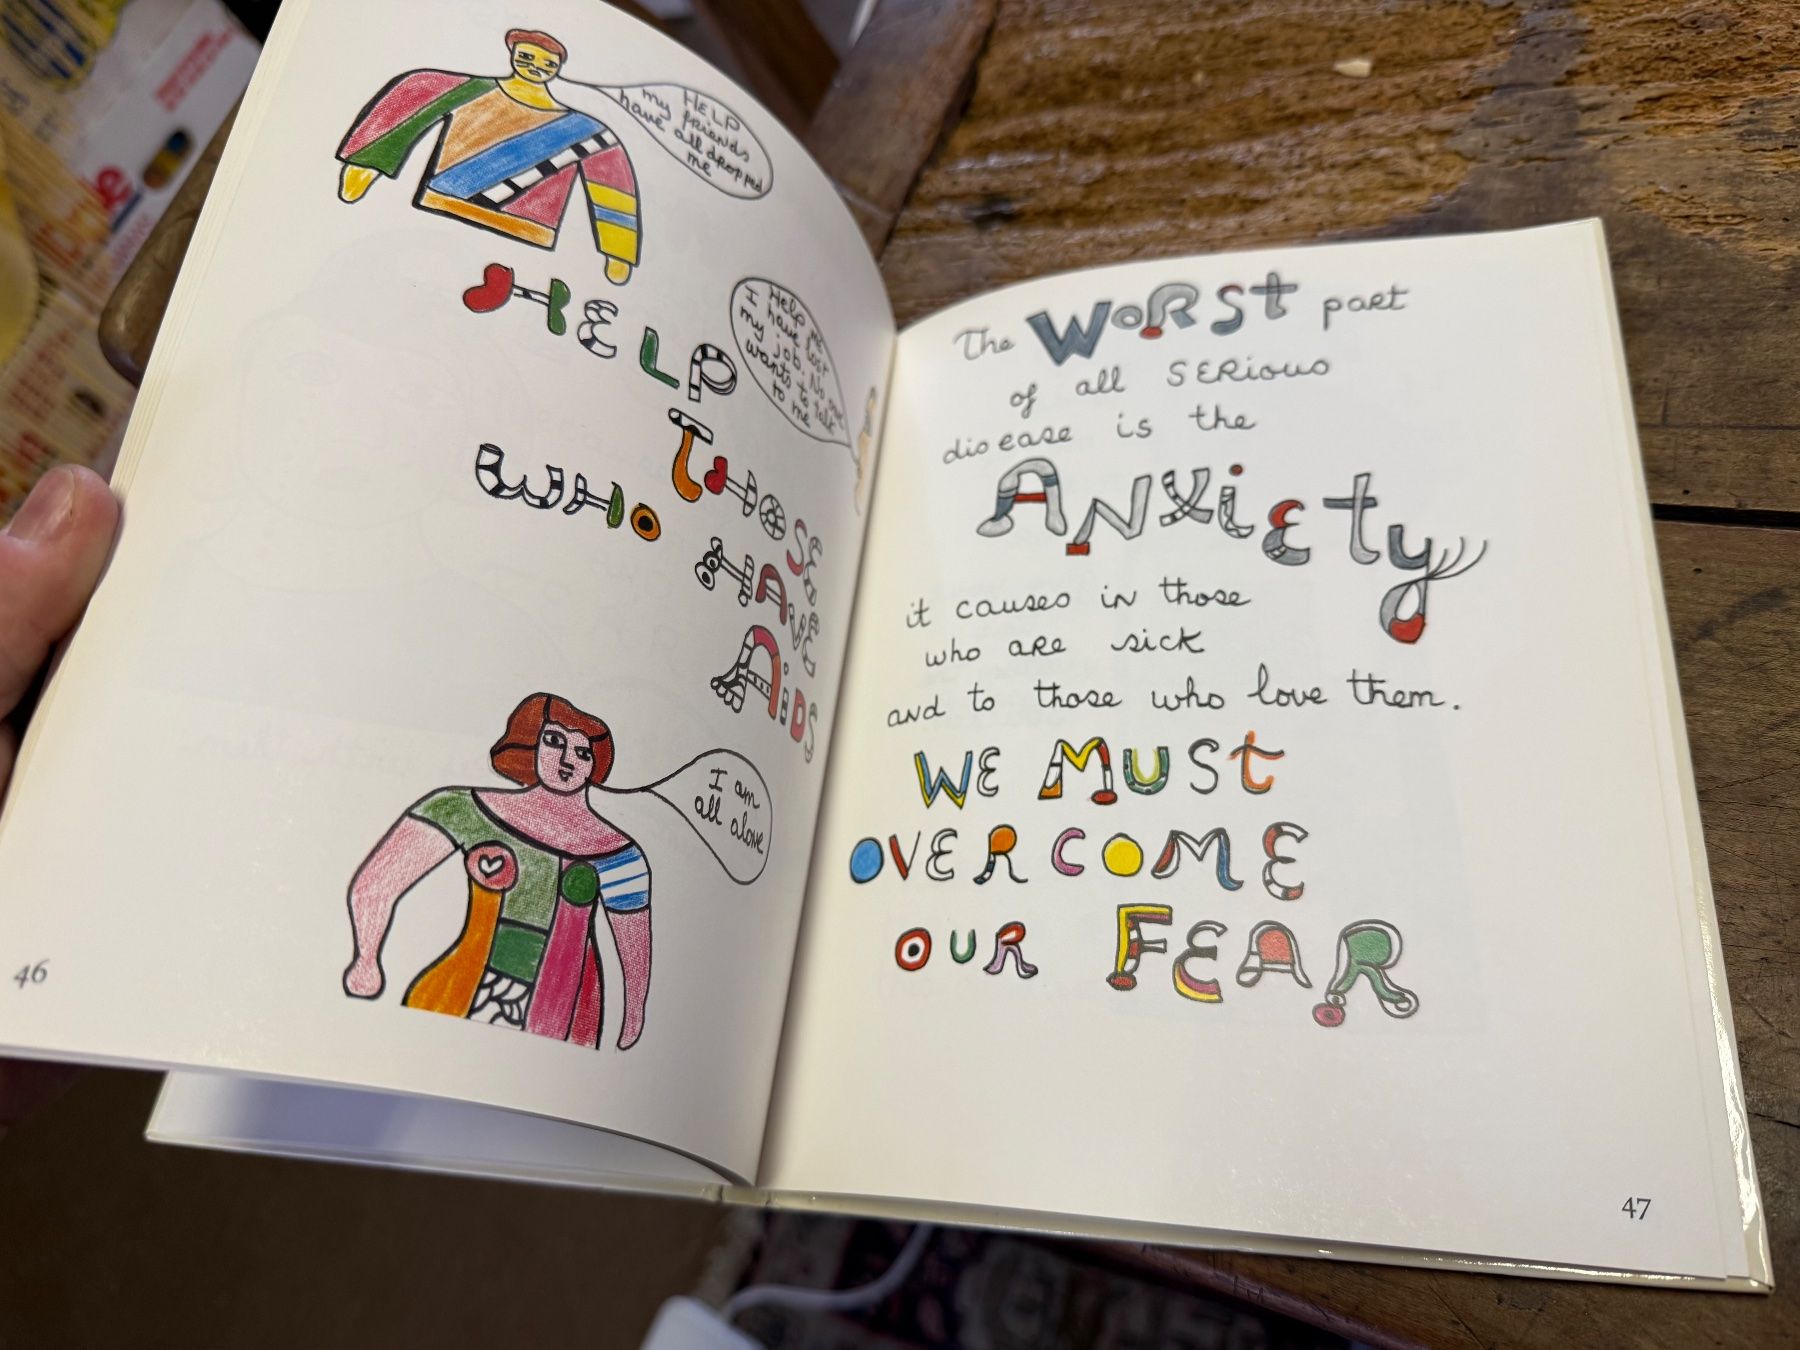 HELP
my friends
have all dropped
me
HELP
Help me
I have lost
my job. No one
wants to talk
to me
THOSE
WHO HAVE
AIDS
I am
all alone
46
The WORST part
of all SERious
disease is the
ANXiEty
it causes in those
who are sick
and to those who love them.
WE MUSt
OVER COME
OUR FEAR
47